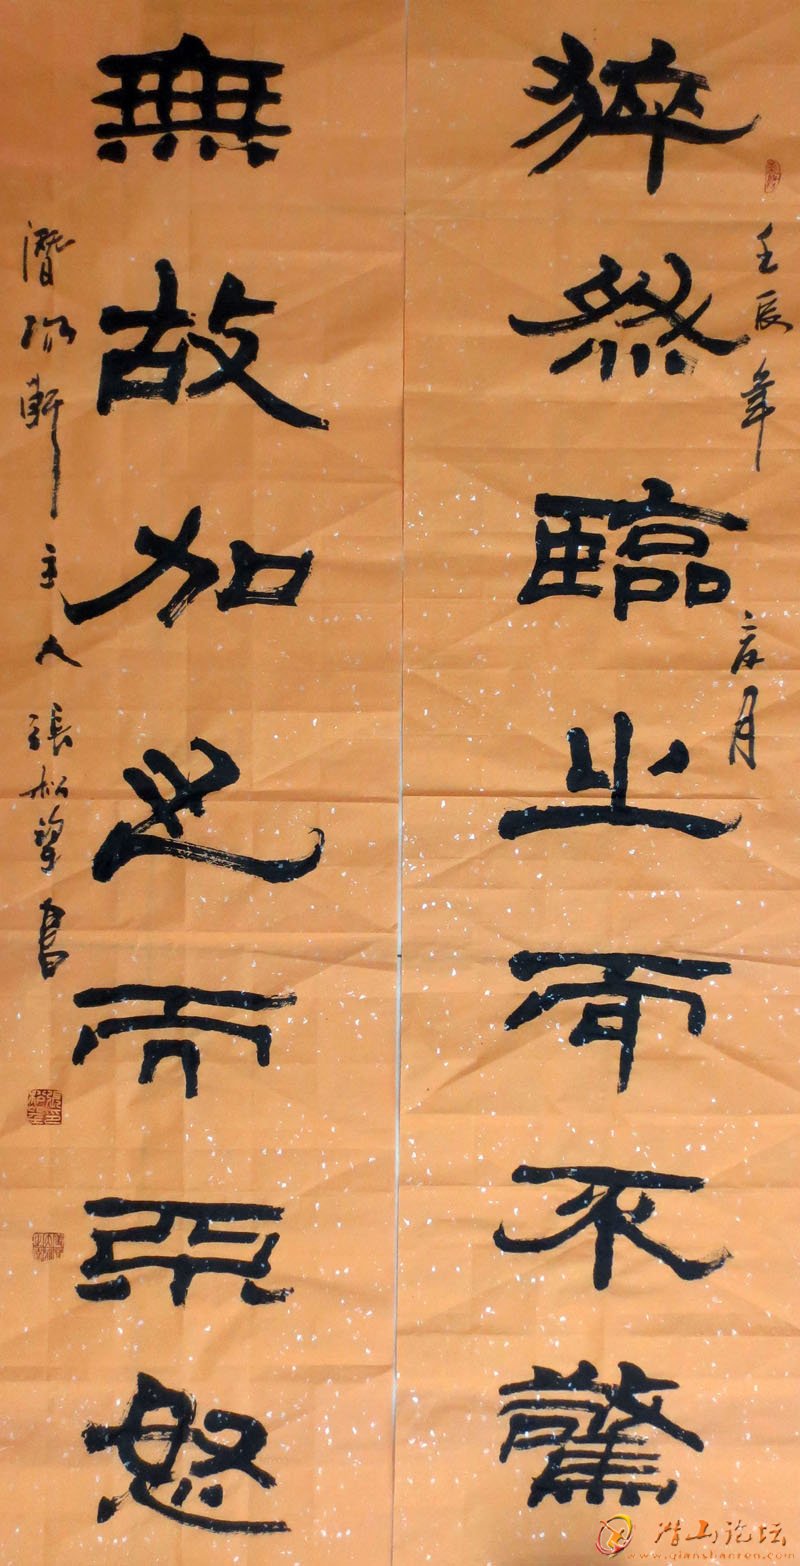 壬辰年 月
猝然臨之而不驚
無故加之而不怒
潛 軒主人張松 書
潜山论坛
www.qianshanren.com